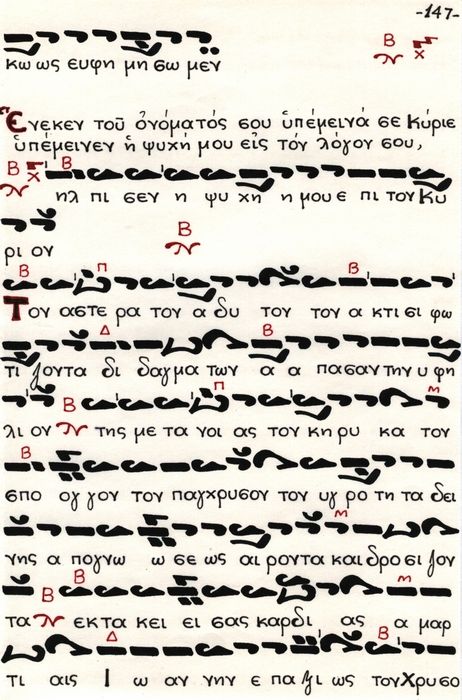 -147-
κω ως ευφη μη σω μεν
Ἕνεκεν τοῦ ὀνόματός σου ὑπέμεινά σε Κύριε
ὑπέμεινεν ἡ ψυχή μου εἰς τόν λόγον σου,
ηλ πι σεν η ψυ χη η μου ε πι τον Κυ
ρι ον
Τον αστε ρα τον α δυ τον τον α κτι σι φω
τι ζοντα δι δαγμα των α α πασαν την υ φη
λι ον της με τα νοι ας τον κη ρυ κα τον
σπο ογ γον τον παγχρυσον τον υγ ρο τη τα δει
νης α πογνω ω σε ως αι ροντα και δρο σι ζον
τα εκτα κει ει σας καρδι ας α μαρ
τι αις Ι ω αν νην ε παξι ως τον Χρυσο